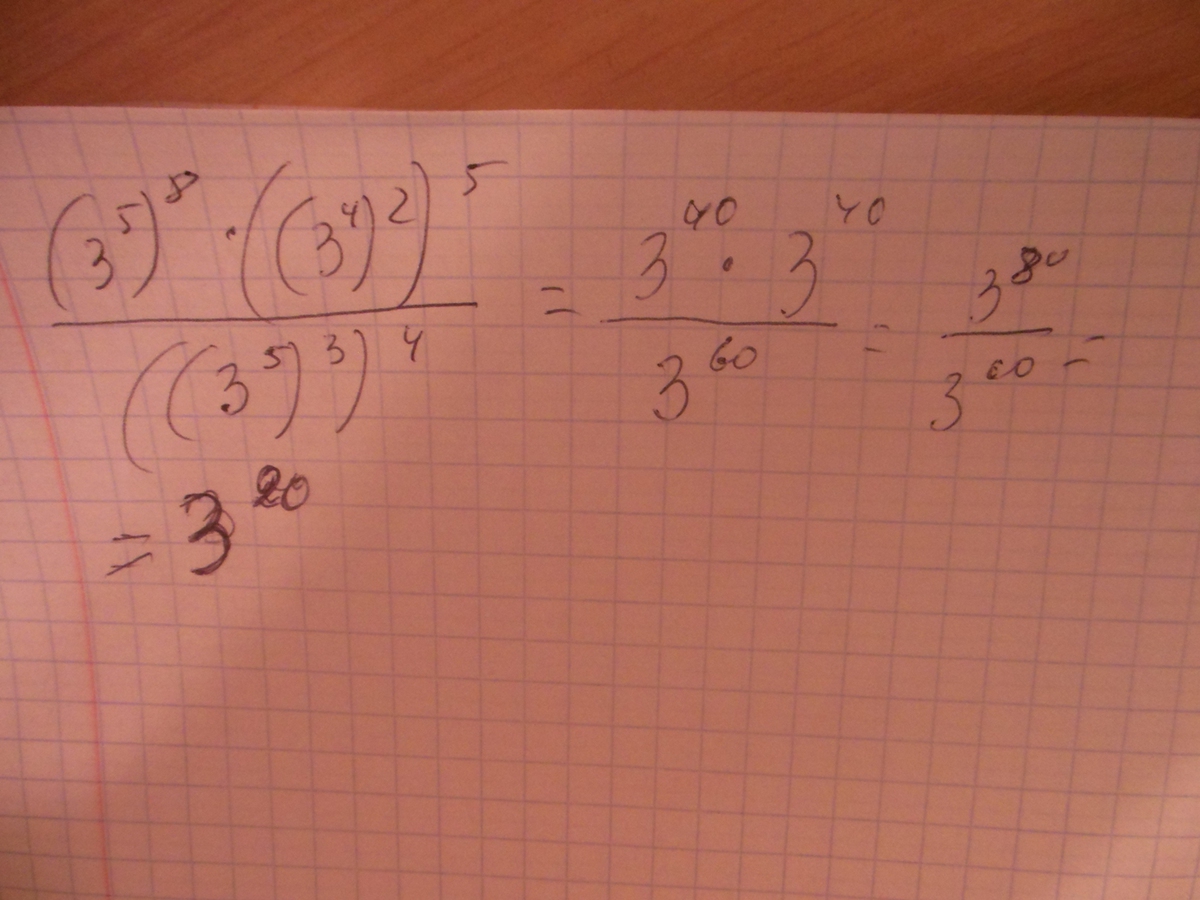 (3^5)^8 · ((3^4)^2)^5 / ((3^5)^3)^4 = 3^40 · 3^40 / 3^60 = 3^80 / 3^60 =
= 3^20